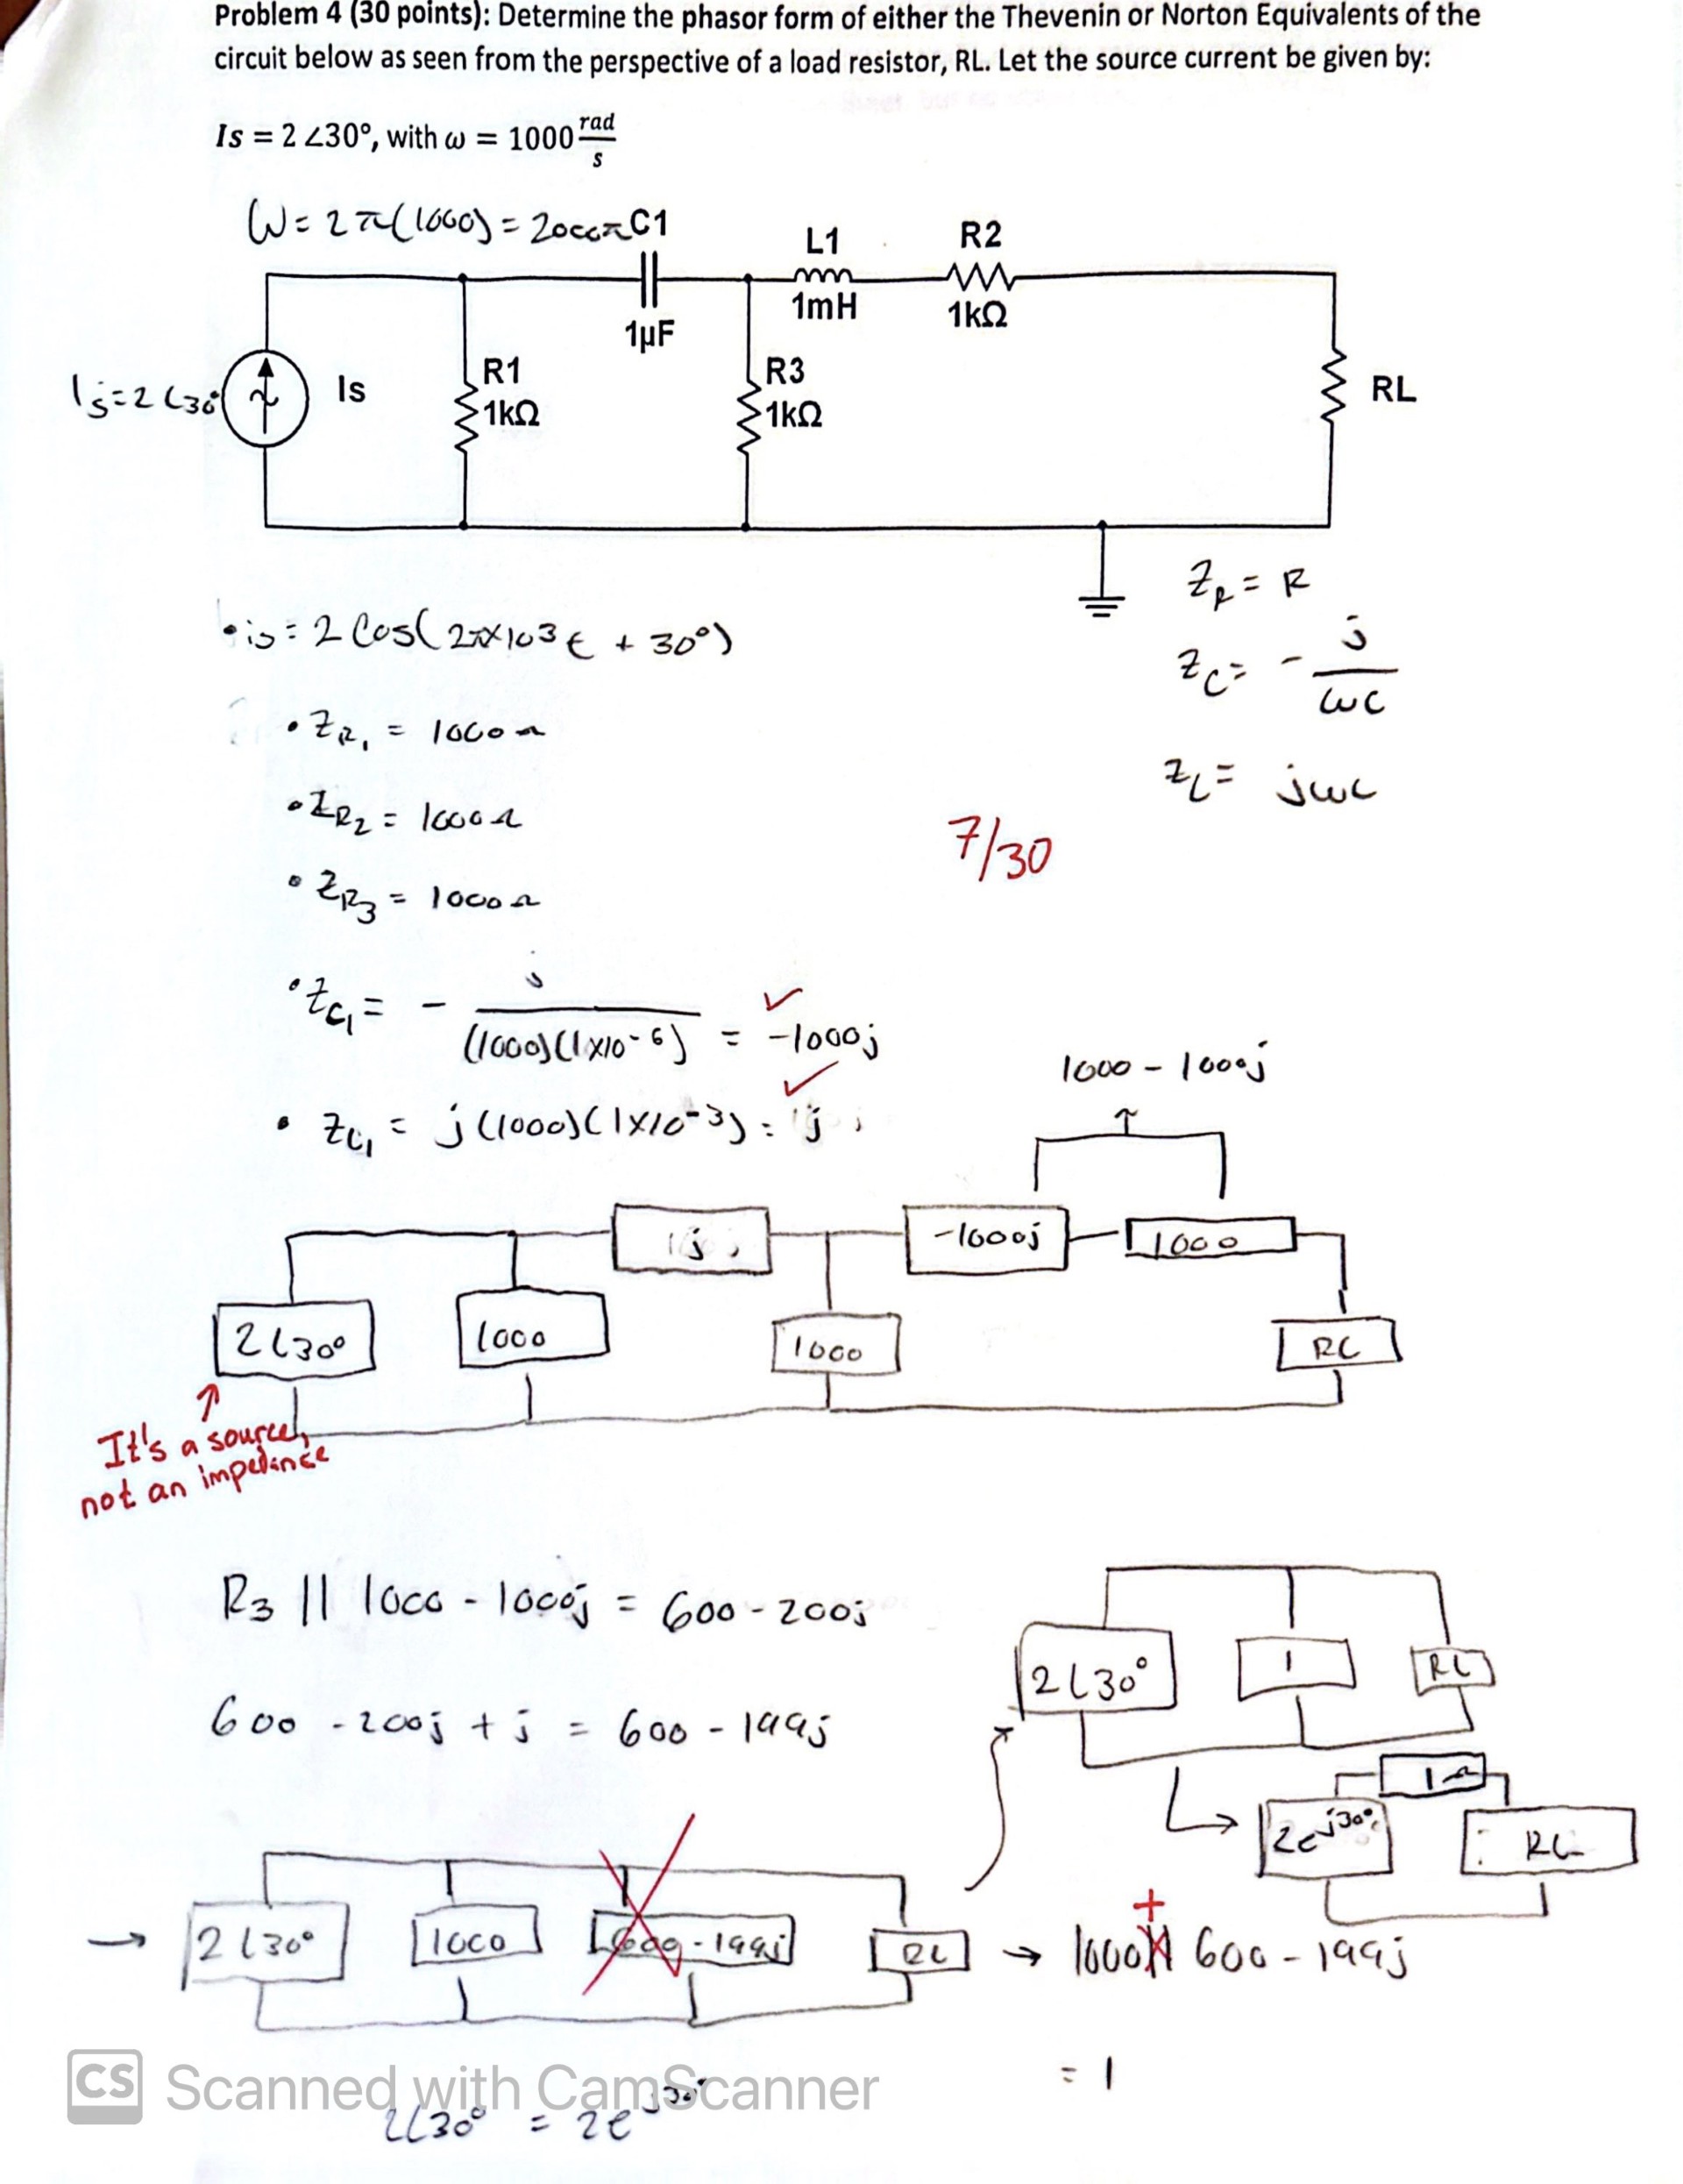 Problem 4 (30 points): Determine the phasor form of either the Thevenin or Norton Equivalents of the
circuit below as seen from the perspective of a load resistor, RL. Let the source current be given by:
Is = 2 ∠30°, with ω = 1000 rad/s
W = 2π(1000) = 2000π
C1
1µF
L1
1mH
R2
1kΩ
Is = 2∠30°
Is
R1
1kΩ
R3
1kΩ
RL
• is = 2 Cos(2π×10³t + 30°)
Z_R = R
Z_C = - j/ωC
Z_L = jωL
• Z_R₁ = 1000Ω
• Z_R₂ = 1000Ω
• Z_R₃ = 1000Ω
7/30
• Z_C₁ = - j/((1000)(1×10⁻⁶)) = -1000j ✓
• Z_L₁ = j(1000)(1×10⁻³) = 1j ✓
1000 - 1000j
1j
-1000j
1000
2∠30°
1000
1000
RL
It's a source,
not an impedance
R₃ || 1000 - 1000j = 600 - 200j
600 - 200j + j = 600 - 199j
2∠30°
1
RL
1Ω
2e^j30°
RL
→ 2∠30°
1000
600 - 199j
RL
→ 1000 || + 600 - 199j
= 1
CS Scanned with CamScanner
2∠30° = 2e^j30°